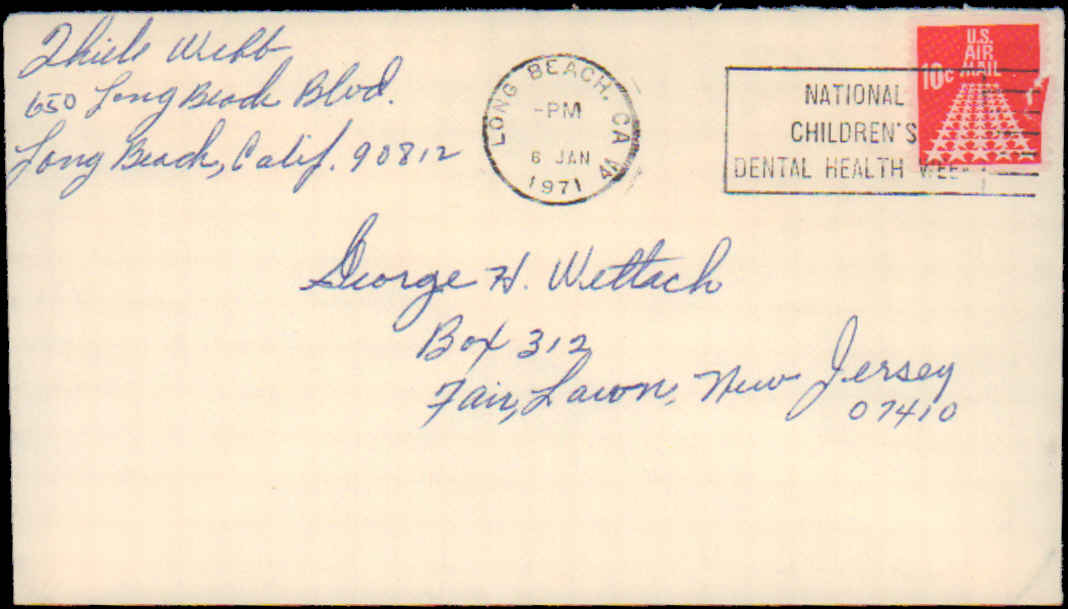 Thiele Webb
650 Long Beach Blvd.
Long Beach, Calif. 90812
LONG BEACH, CA
-PM
6 JAN
1971
NATIONAL
CHILDREN'S
DENTAL HEALTH WEE
U.S.
AIR
MAIL
10c
George H. Wettach
Box 312
Fair, Lawn, New Jersey
07410